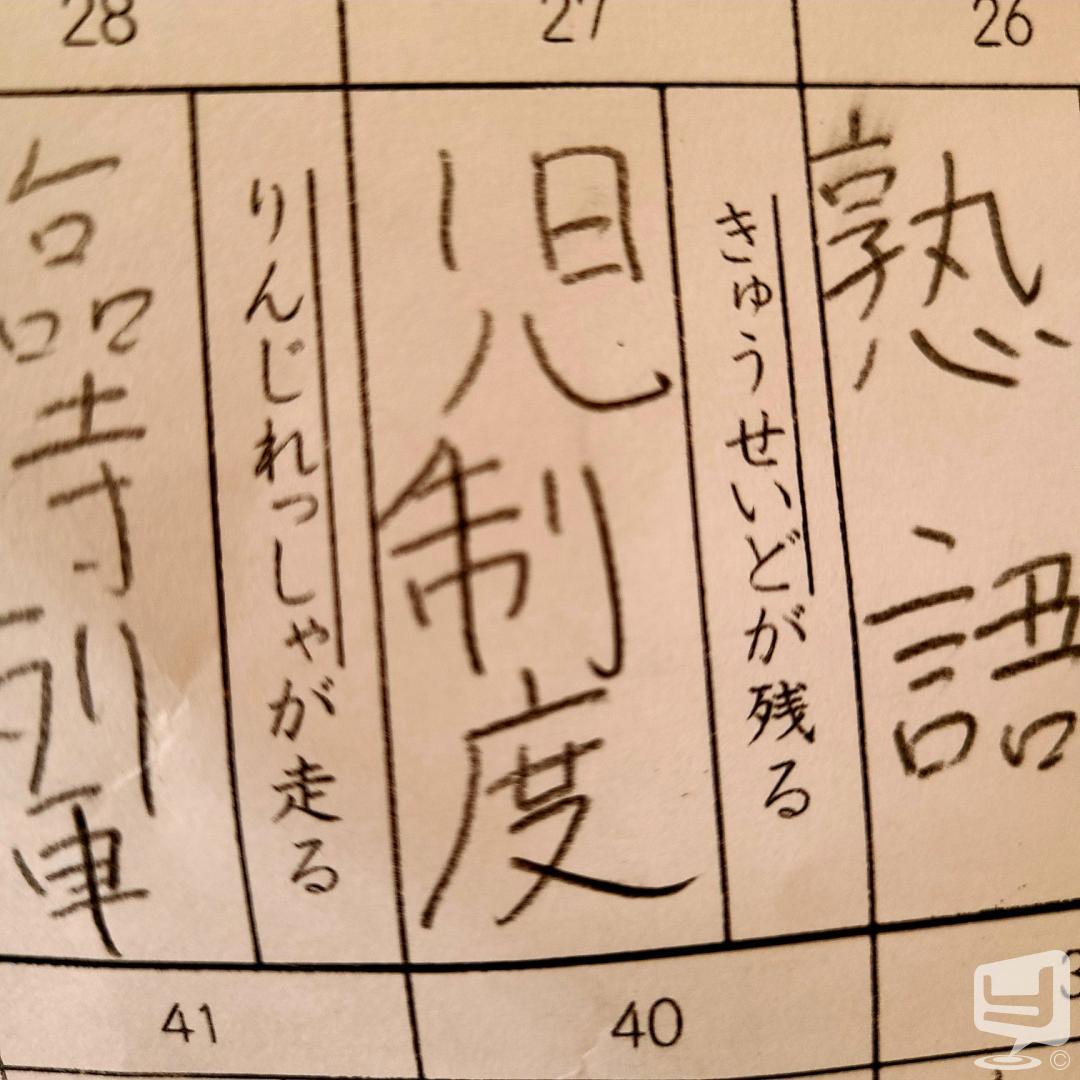 26
27
28
熟語
きゅうせいどが残る
児制度
りんじれっしゃが走る
臨時列車
40
41